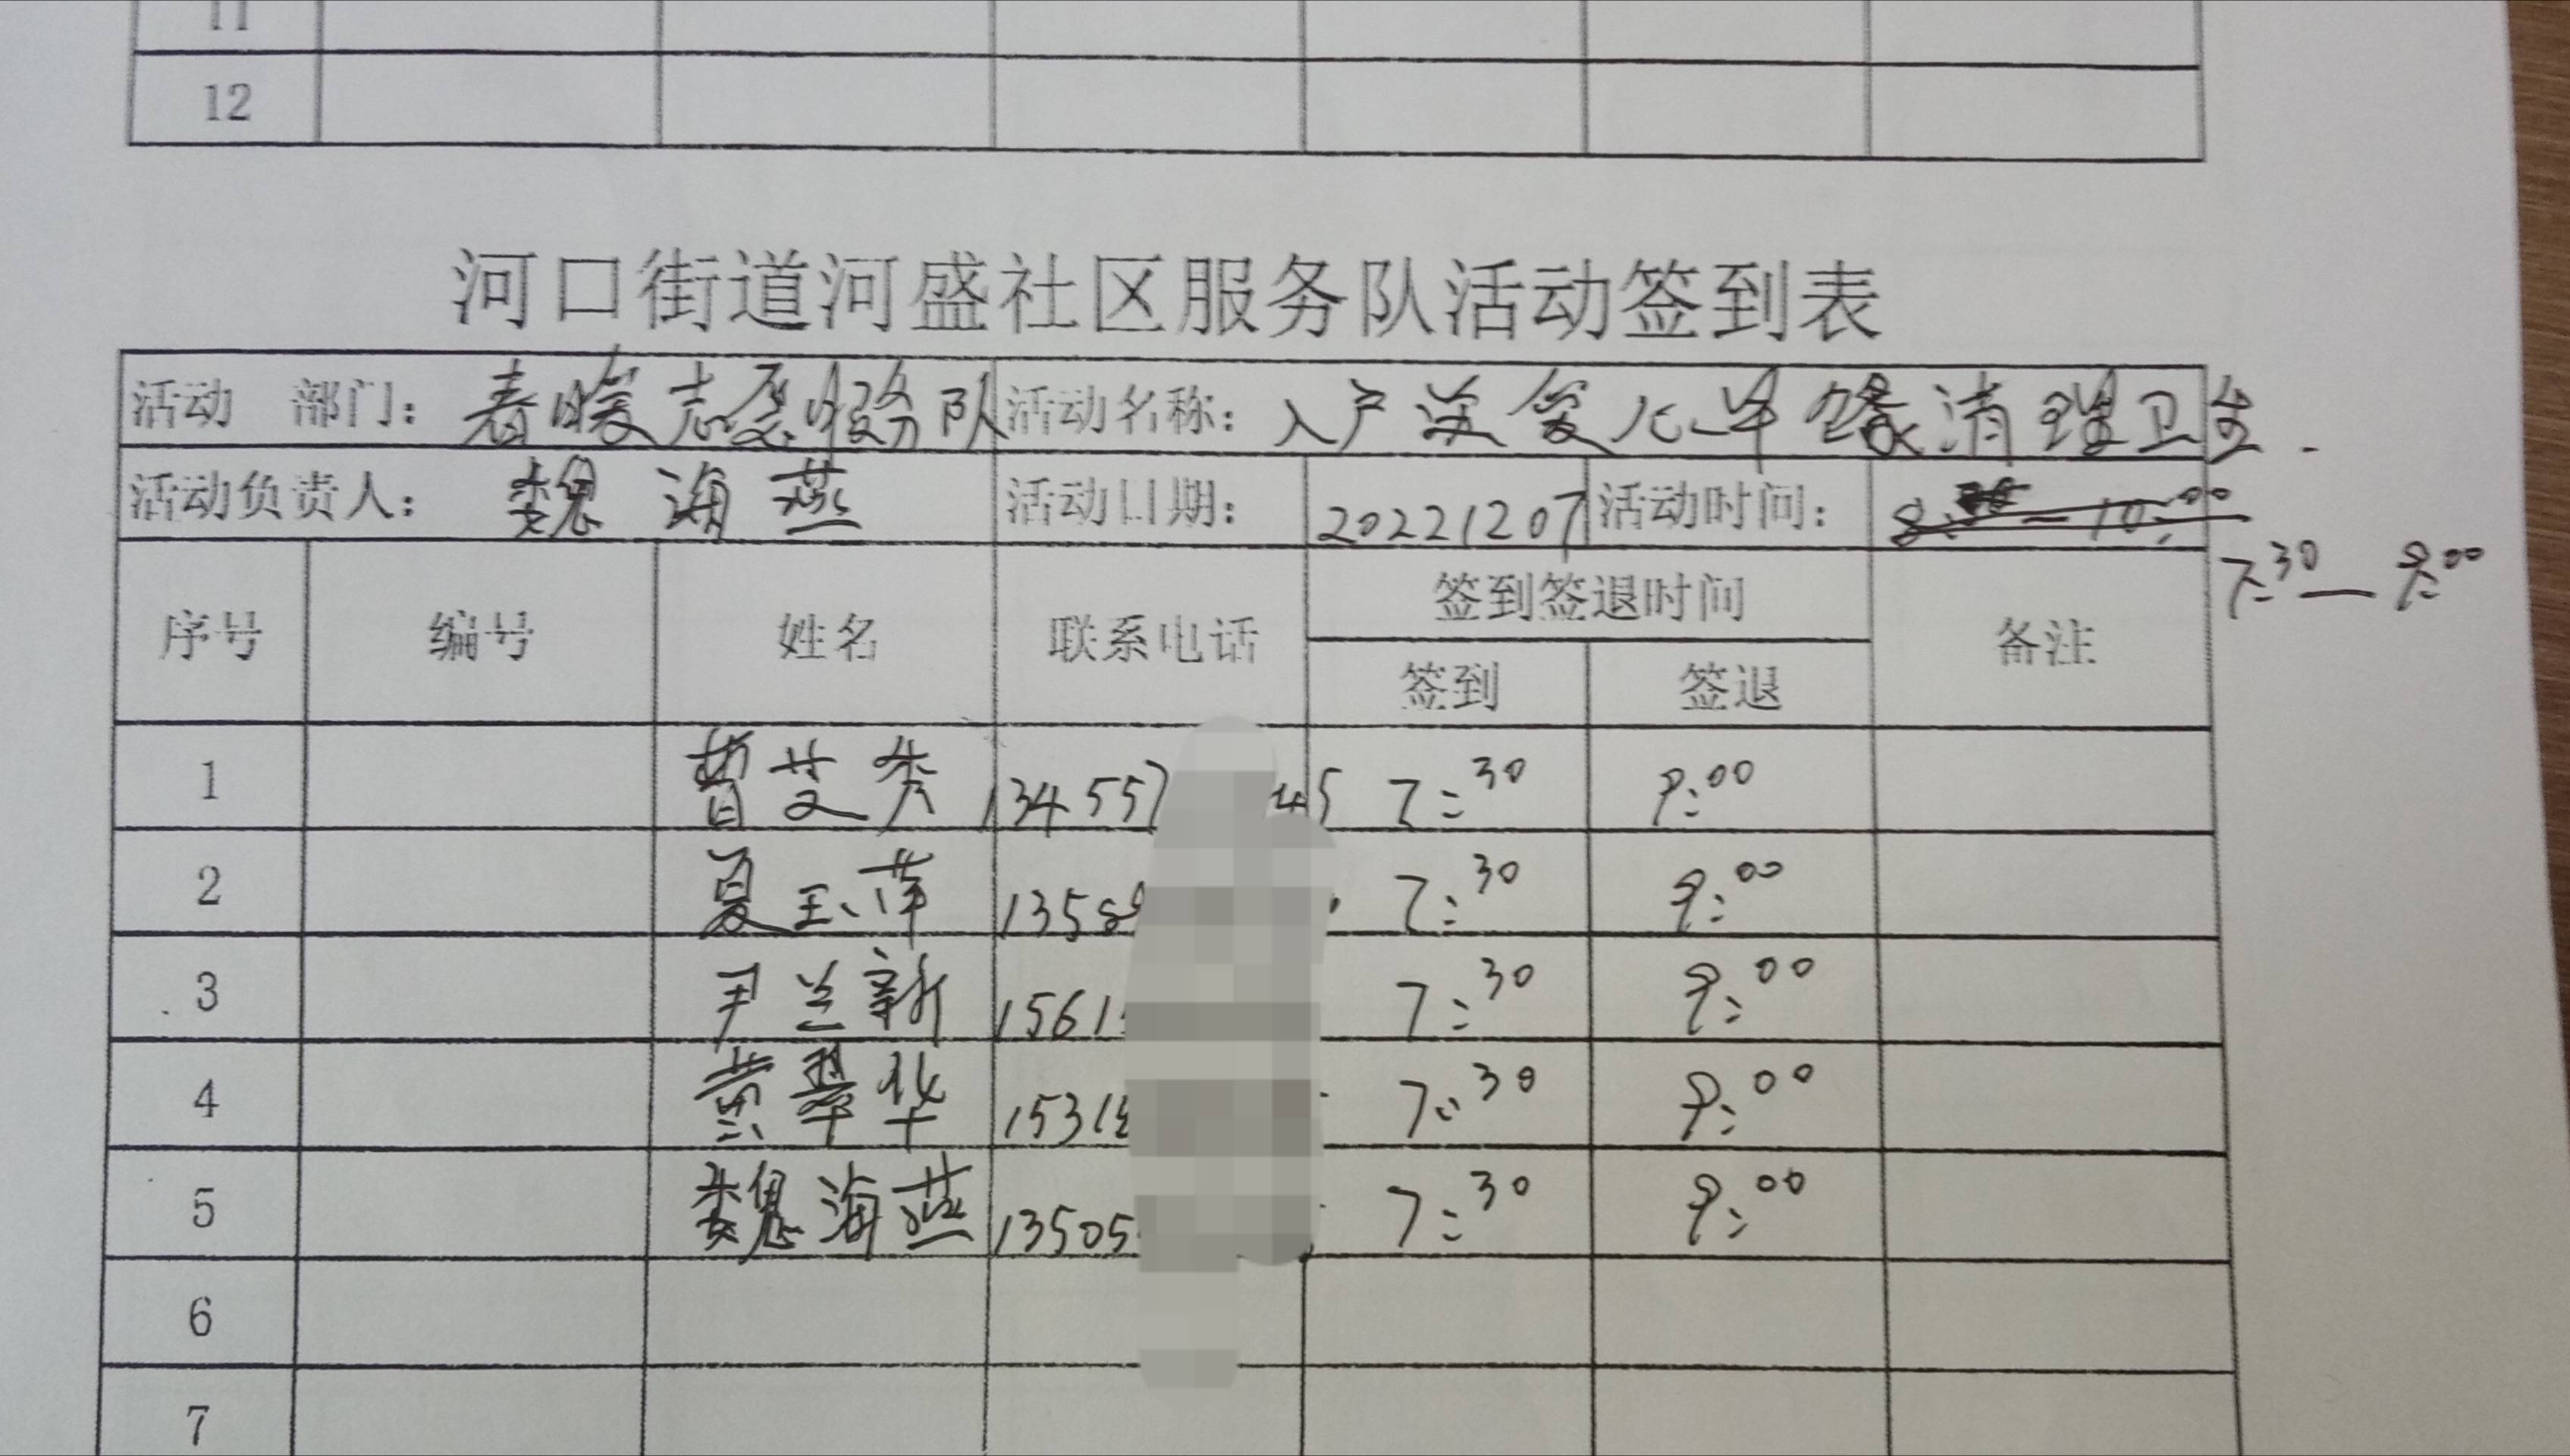 11
12
河口街道河盛社区服务队活动签到表
活动 部门： 春暖志愿服务队 活动名称： 入户 清理卫生.
活动负责人： 魏海燕 活动日期： 20221207 活动时间： 8: 10:00
7:30—9:00
序号 编号 姓名 联系电话 签到签退时间 备注
签到 签退
1 曹艾秀 134557 45 7:30 9:00
2 夏玉萍 1358 7:30 9:00
3 尹兰新 1561 7:30 9:00
4 黄翠华 1531 7:30 9:00
5 魏海燕 13505 7:30 9:00
6
7